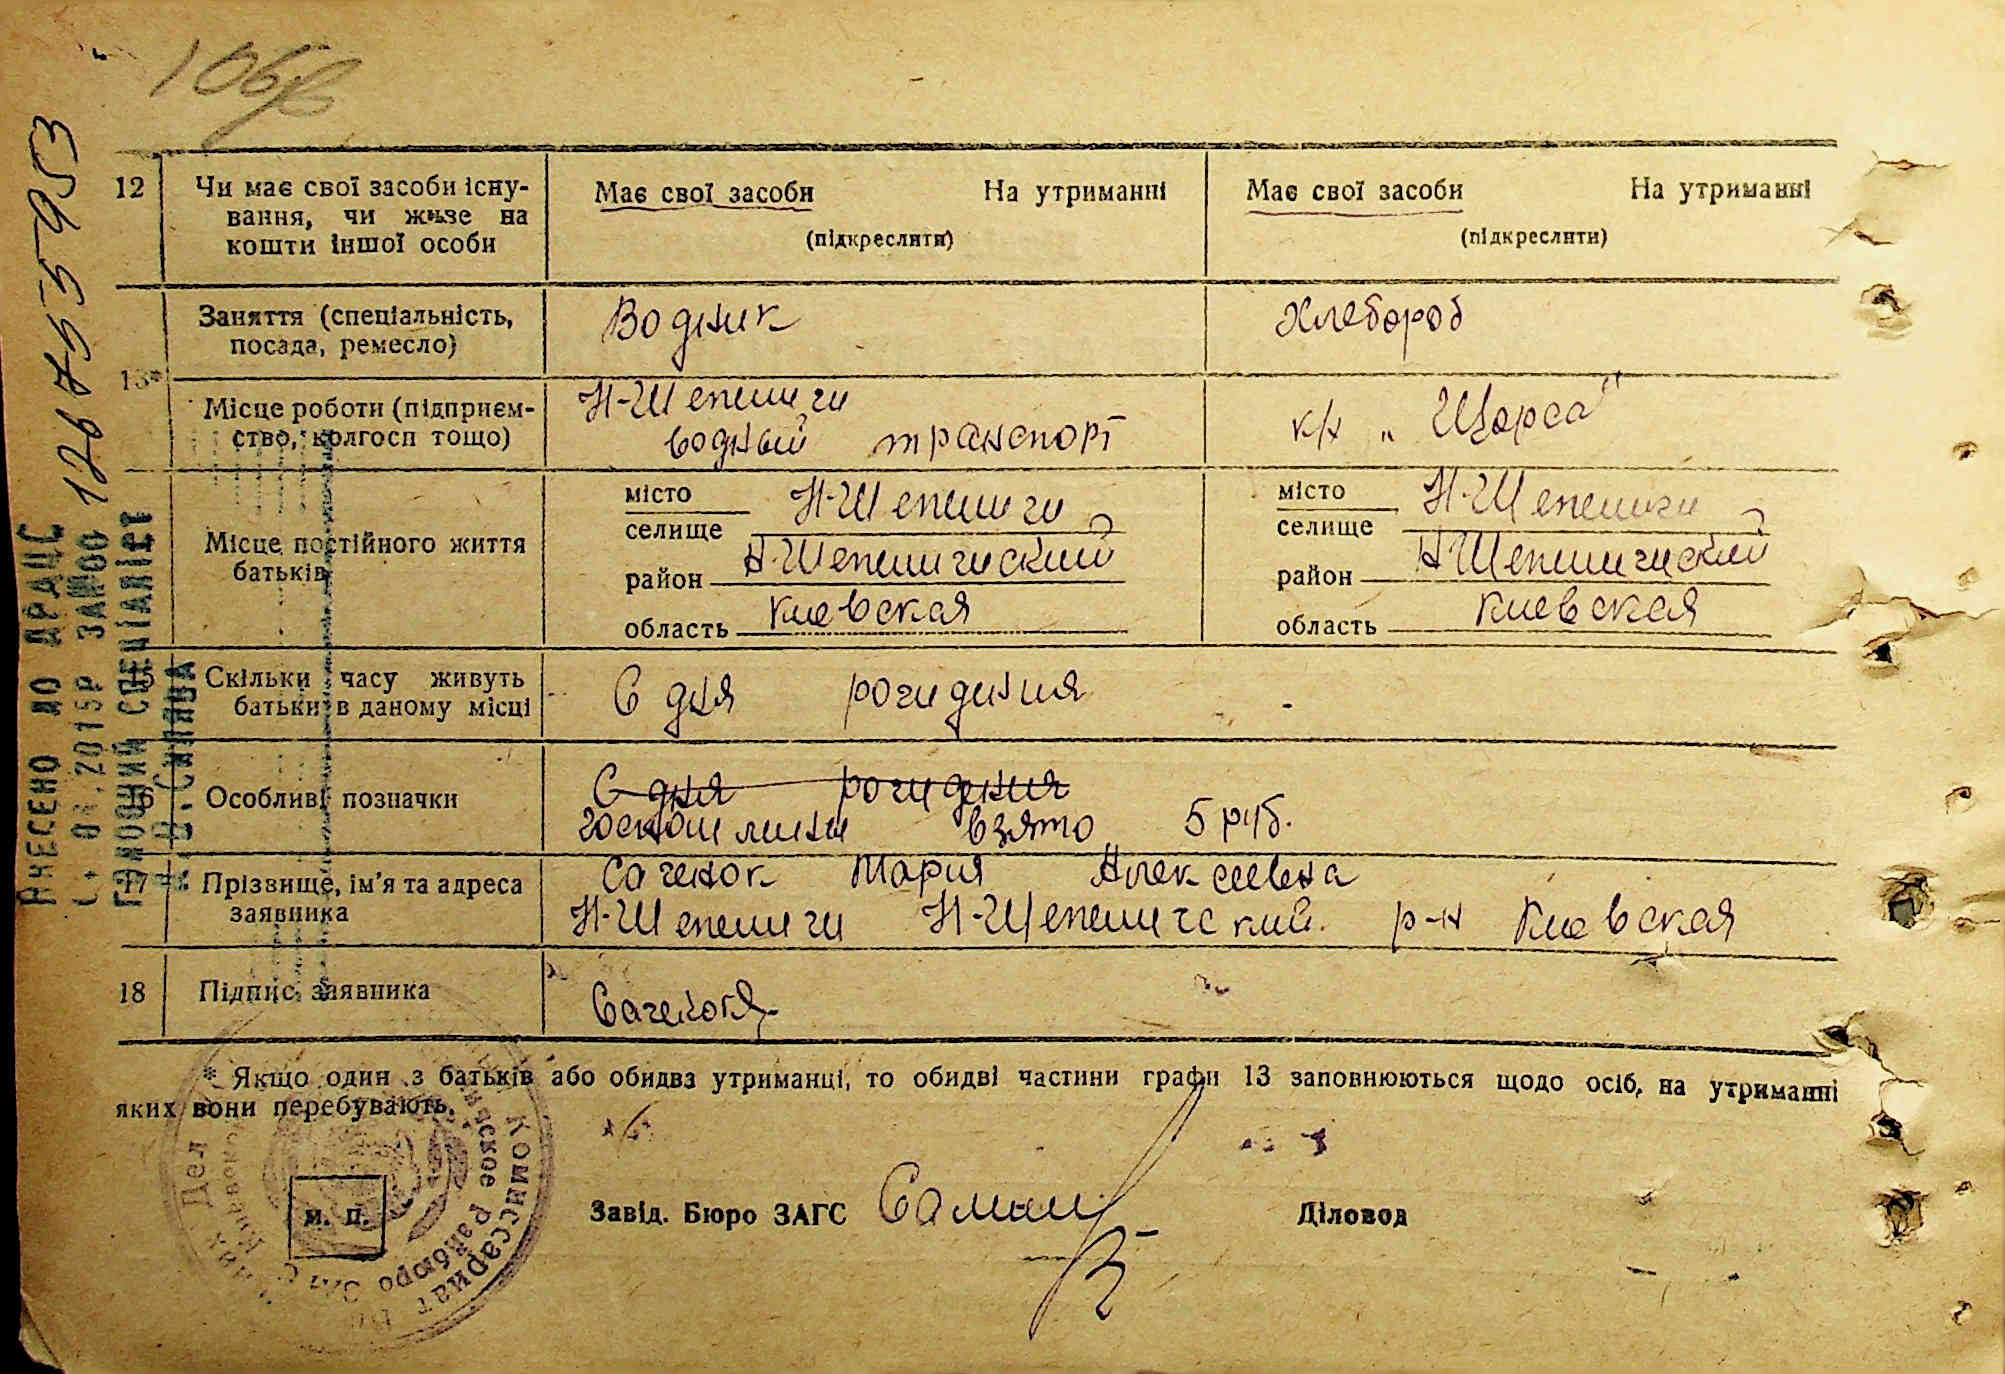 12 Чи має свої засоби існу-
вання, чи живе на
кошти іншої особи
Має свої засоби На утриманні
(підкреслити)
Має свої засоби На утриманні
(підкреслити)
13*
Заняття (спеціальність,
посада, ремесло)
Водник
Хлебороб
Місце роботи (підприєм-
ство, колгосп тощо)
Н-Шепеличи
водный транспорт
к/х „Щорса“
Місце постійного життя
батьків
місто
селище Н-Шепеличи
район Н-Шепеличский
область Киевская
місто
селище Н-Шепеличи
район Н-Шепеличский
область Киевская
15 Скільки часу живуть
батьки в даному місці
С дня рождения -
16 Особливі позначки
С дня рождения
госпошлины взято 5 руб.
17 Прізвище, ім'я та адреса
заявника
Саченок Мария Алексеевна
Н-Шепеличи Н-Шепеличский р-н Киевская
18 Підпис заявника
* Якщо один з батьків або обидва утриманці, то обидві частини графи 13 заповнюються щодо осіб, на утриманні
яких вони перебувають.
м. п.
Завід. Бюро ЗАГС
Діловод
Комиссариат Вн
них Дел
Райбюро ЗАГС
ВНЕСЕНО ДО ДРАЦС
2015р ЗА №00
ГОЛОВНИЙ СПЕЦІАЛІСТ